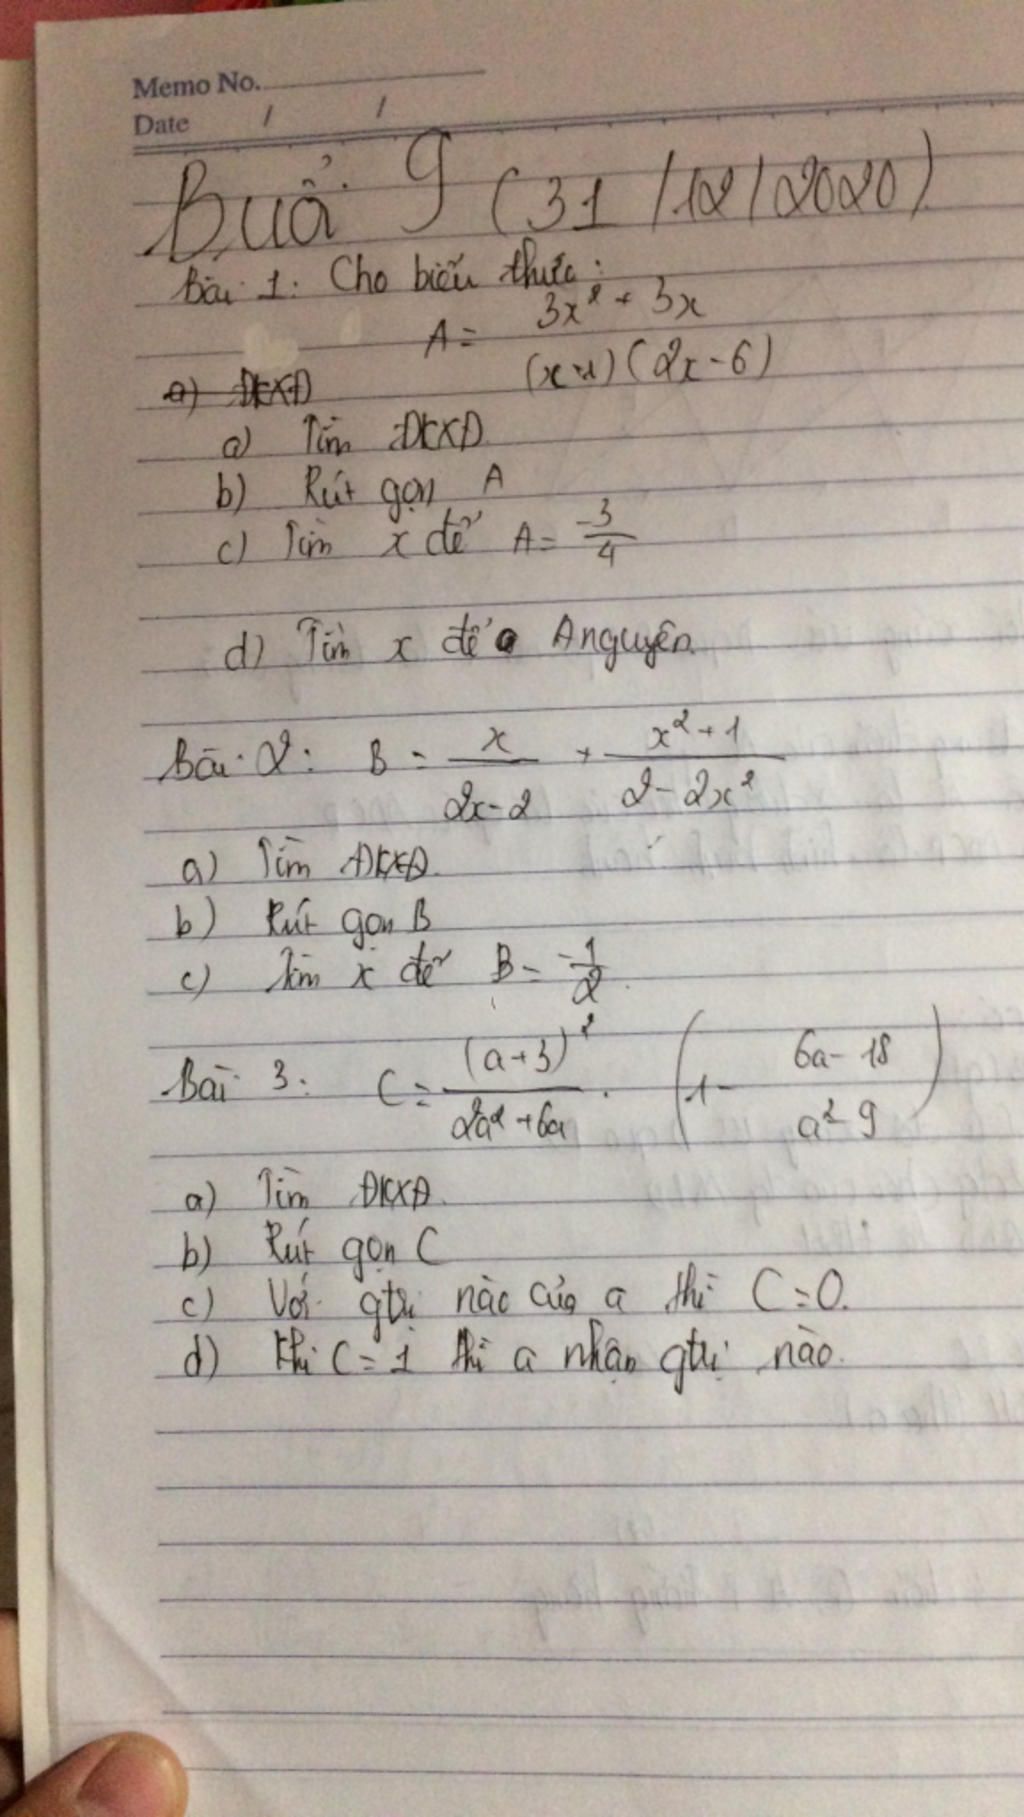 Memo No.
Date / /
Buổi 9 (31/12/2020)
Bài 1: Cho biểu thức:
A = (3x² + 3x) / ((x+1)(2x-6))
a) ĐKXĐ
a) Tìm ĐKXĐ
b) Rút gọn A
c) Tìm x để A = -3/4
d) Tìm x để A nguyên.
Bài 2: B = x/(2x-2) + (x²+1)/(2-2x²)
a) Tìm ĐKXĐ.
b) Rút gọn B
c) Tìm x để B = -1/2.
Bài 3: C = (a+3)²/(2a²+6a) . (1 - (6a-18)/(a²-9))
a) Tìm ĐKXĐ.
b) Rút gọn C
c) Với gtrị nào của a thì C=0.
d) Khi C=1 thì a nhận gtrị nào.